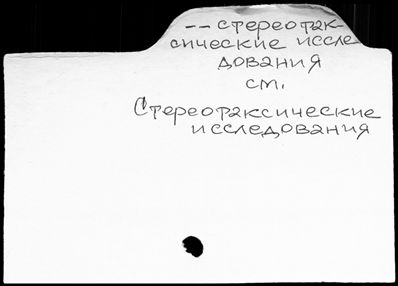 -- стереотак-
сические иссле
дования
см.
Стереотаксические
исследования